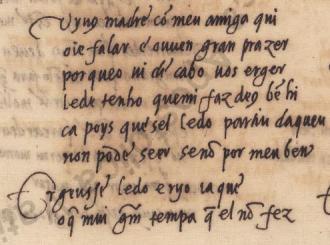 Vyno madre cō meu amiga qui
oie falar e ouuen gran prazer
porqueo ui de cabo uos erger
lede tenho quemi faz deꝯ bē hi
ca poys que sel ledo partiu daquen
non pode seer senō por meu ben
Ergeusse ledo e ryo ia que
o q̄ mui grā tempa q̄ el nō fez